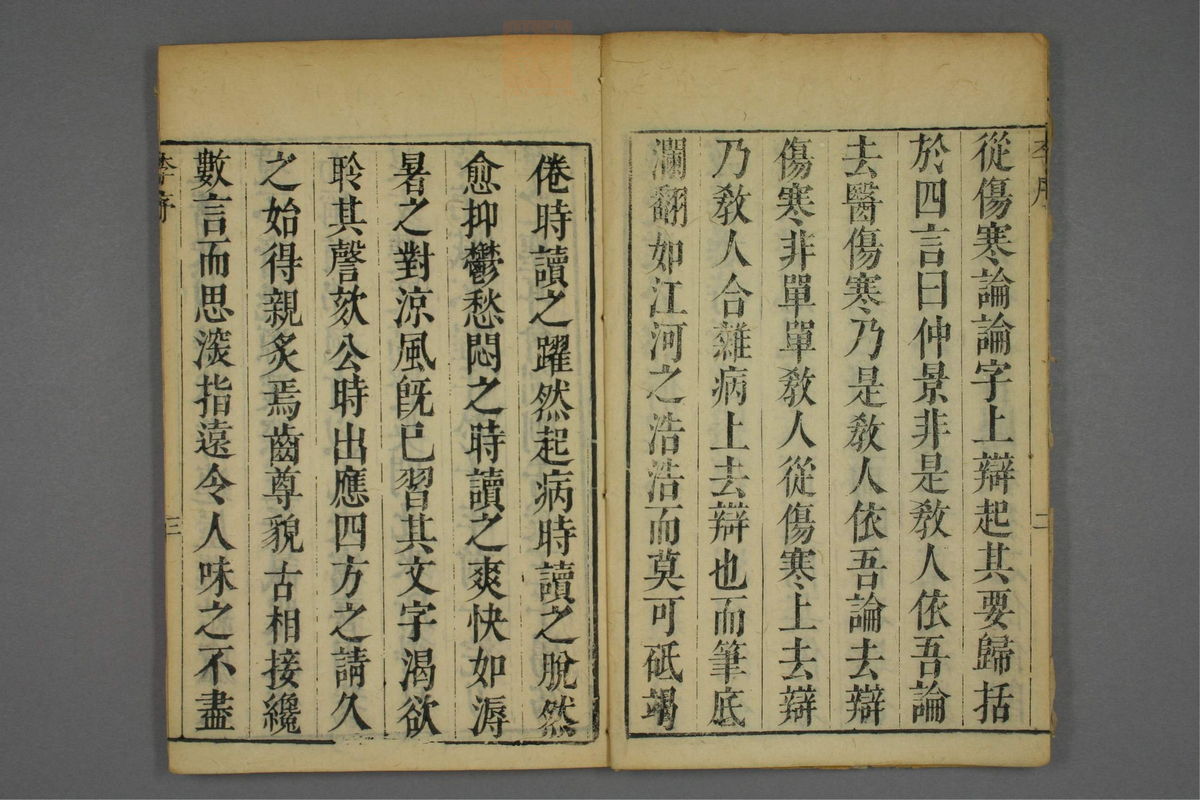 從傷寒論論字上辯起其要歸括
於四言曰仲景非是敎人依吾論
去醫傷寒乃是敎人依吾論去辯
傷寒非單單敎人從傷寒上去辯
乃敎人合雜病上去辯也而筆底
瀾翻如江河之浩浩而莫可砥竭
二
倦時讀之躍然起病時讀之脫然
愈抑鬱愁悶之時讀之爽快如溽
暑之對涼風旣已習其文字渴欲
聆其謦欬公時出應四方之請久
之始得親炙焉齒尊貌古相接纔
數言而思深指遠令人味之不盡
李序
三